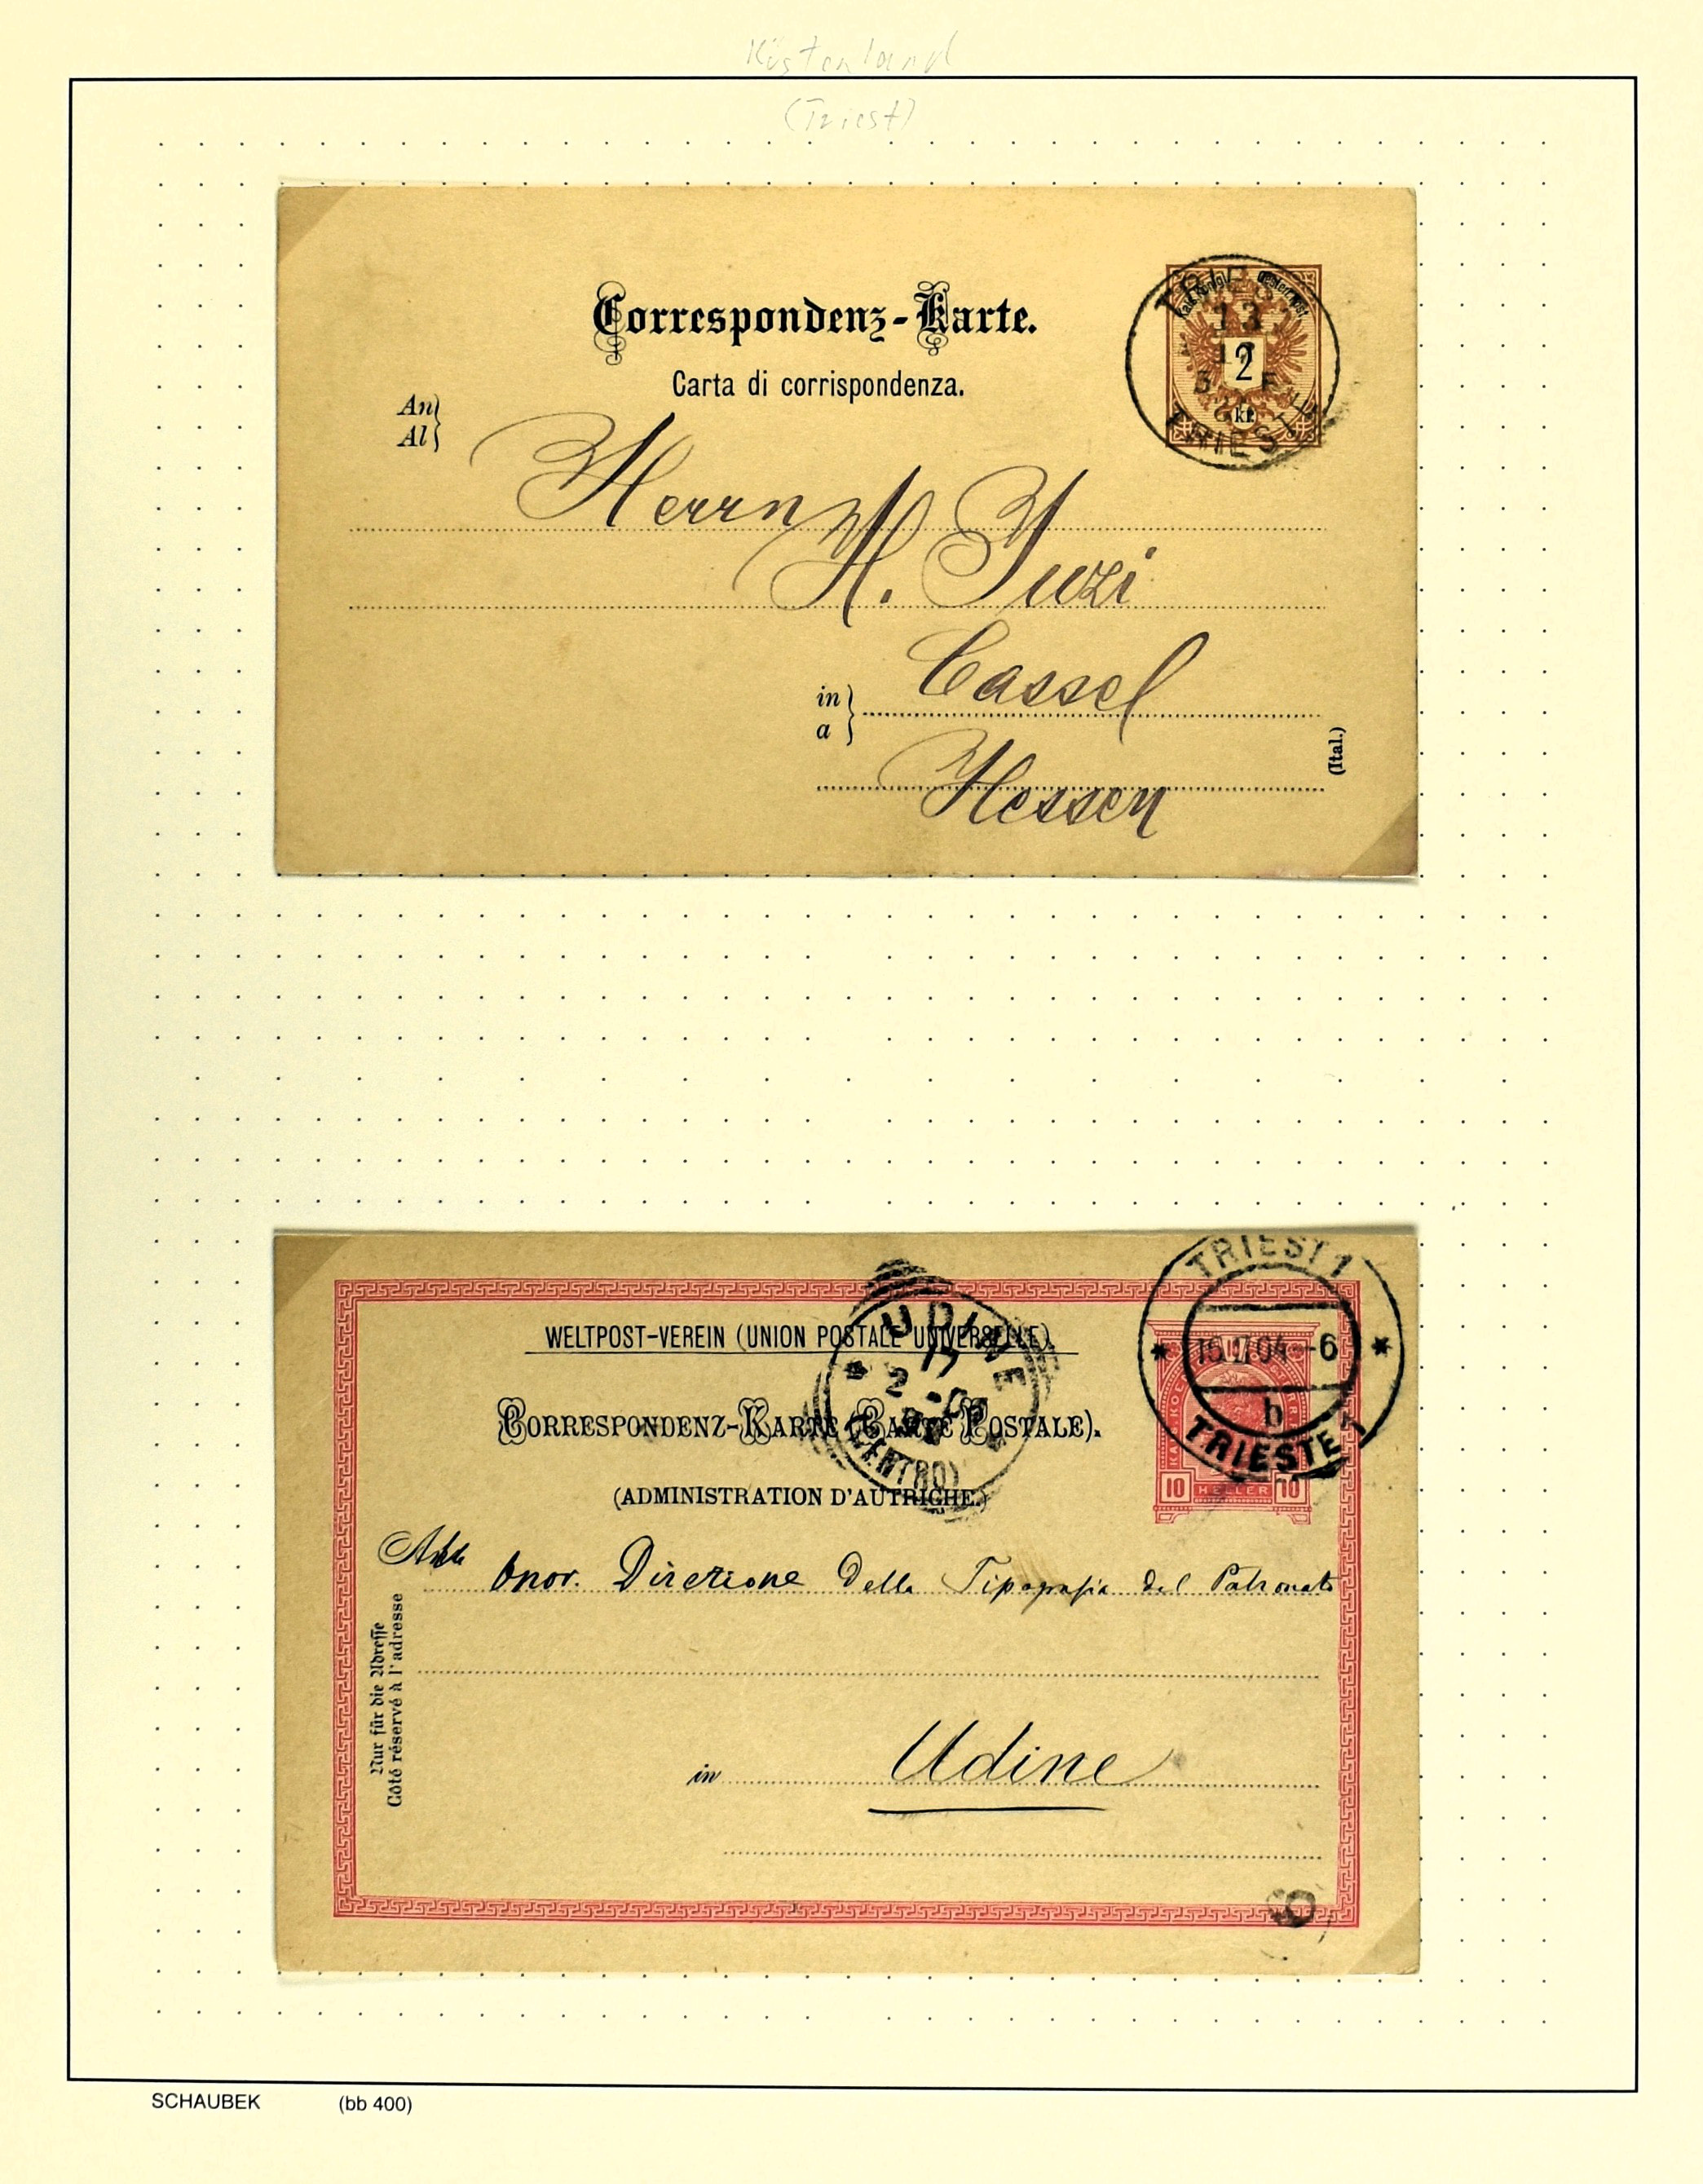 Küstenland
(Triest)
Correspondenz-Karte.
Carta di corrispondenza.
An
Al
Kais. Königl. Oesterr. Post
2
kr.
TRIEST
13
TRIESTE
Herrn
H. Juzi
in
a
Cassel
Hessen
(Ital.)
WELTPOST-VEREIN (UNION POSTALE UNIVERSELLE)
CORRESPONDENZ-KARTE (CARTE POSTALE).
(ADMINISTRATION D'AUTRICHE.)
UDINE
17
2
(CENTRO)
TRIEST 1
-6
b
TRIESTE 1
10 HELLER 10
Onor. Direzione della Tipografia del Patronato
Nur für die Adresse
Côté réservé à l'adresse
in Udine
SCHAUBEK (bb 400)